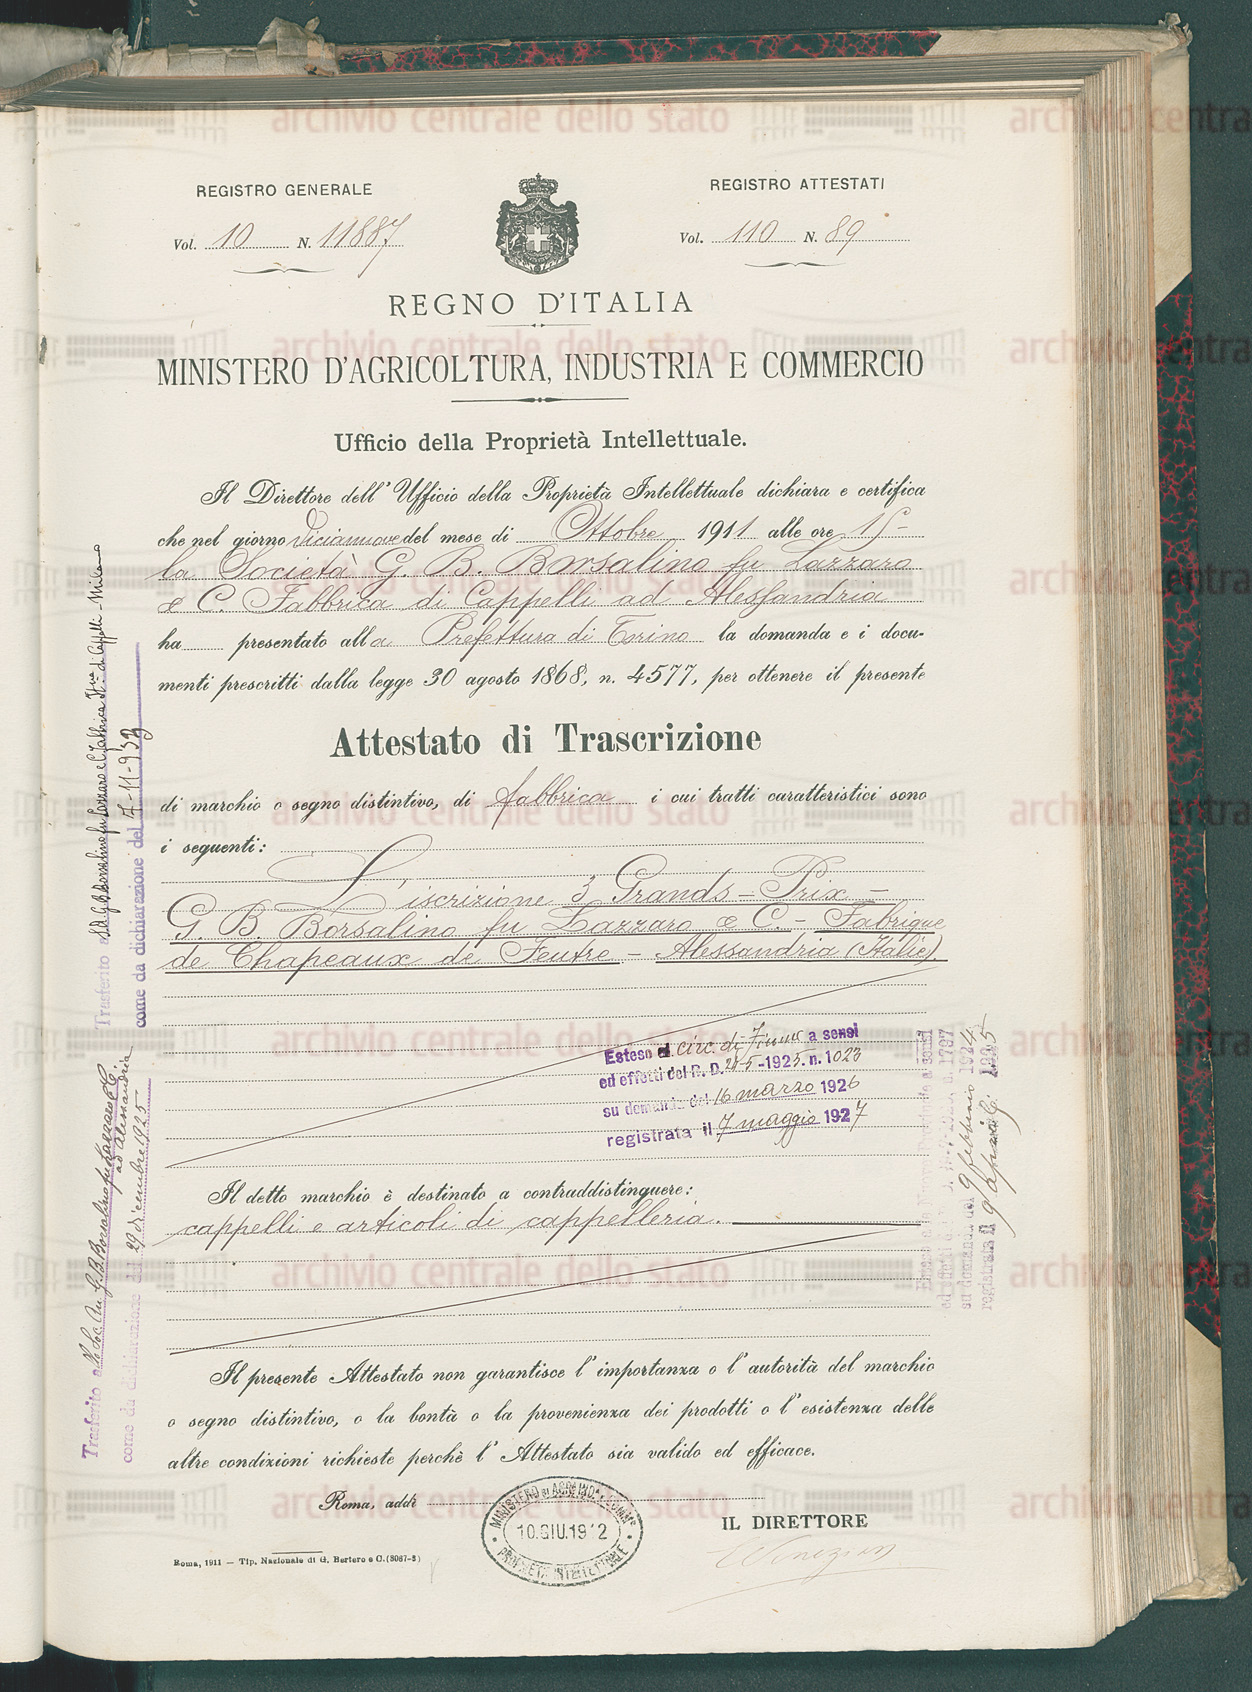 REGISTRO GENERALE
Vol. 10 N. 11887
REGISTRO ATTESTATI
Vol. 110 N. 89
REGNO D'ITALIA
MINISTERO D'AGRICOLTURA, INDUSTRIA E COMMERCIO
Ufficio della Proprietà Intellettuale.
Il Direttore dell'Ufficio della Proprietà Intellettuale dichiara e certifica
che nel giorno diciannove del mese di Ottobre 1911 alle ore 15
la Società G. B. Borsalino fu Lazzaro
e C. Fabbrica di Cappelli ad Alessandria
ha presentato alla Prefettura di Torino la domanda e i docu-
menti prescritti dalla legge 30 agosto 1868, n. 4577, per ottenere il presente
Attestato di Trascrizione
di marchio o segno distintivo, di fabbrica i cui tratti caratteristici sono
i seguenti:
L'iscrizione 3 Grands-Prix -
G. B. Borsalino fu Lazzaro e C. - Fabrique
de Chapeaux de Feutre - Alessandria (Italie)
Esteso a circ. di Fiume a sensi
ed effetti del R. D. -1923. n. 1023
su domanda del 16 marzo 1926
registrata il 7 maggio 1927
Il detto marchio è destinato a contraddistinguere:
cappelli e articoli di cappelleria.
Il presente Attestato non garantisce l'importanza o l'autorità del marchio
o segno distintivo, o la bontà o la provenienza dei prodotti o l'esistenza delle
altre condizioni richieste perchè l'Attestato sia valido ed efficace.
Roma, addì
MINISTERO DI AGR. IND. E COMM.
10.GIU.1912
PROPRIETÀ INTELLETTUALE
IL DIRETTORE
Roma, 1911 — Tip. Nazionale di G. Bertero e C. (3087-3)
Trasferito a G B Borsalino fu Lazzaro e C. Fabbrica di Cappelli - Milano
come da dichiarazione del 7-11-932
Trasferito a Soc. An. G. B. Borsalino fu Lazzaro & C.
ad Alessandria
come da dichiarazione del 29 dicembre 1925
su domanda del 9 febbraio 1924
registrata il 9 1925
archivio centrale dello stato